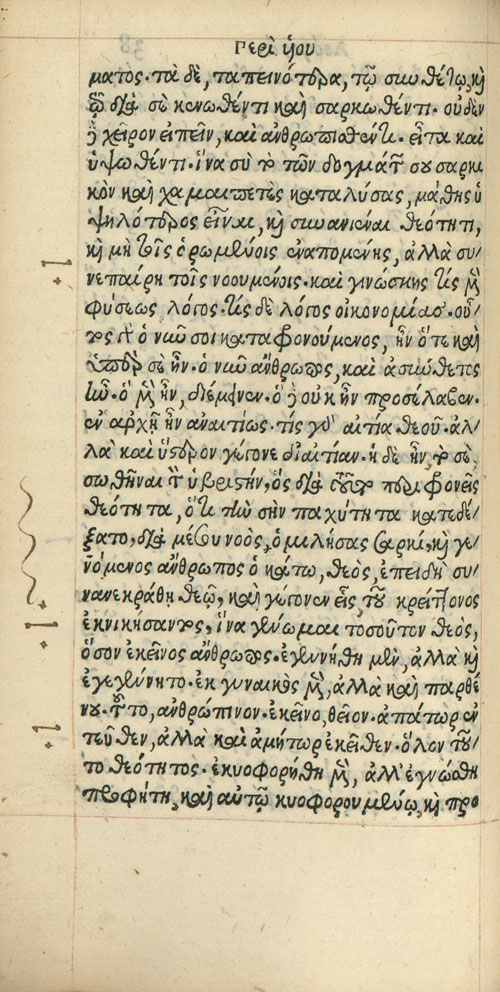 Περὶ ὑιου
ματος· τὰ δὲ, ταπεινότερα, τῷ συνθέτῳ, καὶ
τῷ διὰ σὲ κενωθέντι καὶ σαρκωθέντι· οὐδὲν
δὲ χεῖρον εἰπεῖν, καὶ ἀνθρωπισθέντι· εἶτα καὶ
ὑψωθέντι· ἵνα σὺ τὸ τῶν δογμάτων σου σαρκι
κὸν καὶ χαμαιπετὲς καταλύσας, μάθῃς ὑ
ψηλότερος εἶναι, καὶ συνανιέναι θεότητι,
καὶ μὴ τοῖς ὁρωμένοις ἐναπομένῃς, ἀλλὰ συ/
νεπαίρῃ τοῖς νοουμένοις· καὶ γινώσκῃς τίς μὲν
φύσεως λόγος· τίς δὲ λόγος οἰκονομίας· οὗ/
τος γὰρ ὁ νῦν σοι καταφρονούμενος, ἦν ὅτε καὶ
ὑπὲρ σὲ ἦν· ὁ νῦν ἄνθρωπος, καὶ ἀσύνθετος
ἦν· ὃ μὲν ἦν, διέμεινεν· ὃ δὲ οὐκ ἦν προσέλαβεν·
ἐν ἀρχῇ ἦν ἀναιτίως· τίς γὰρ αἰτία θεοῦ· ἀλ/
λὰ καὶ ὕστερον γέγονε δι' αἰτίαν· ἡ δὲ ἦν τὸ σὲ
σωθῆναι τὸν ὑβριστήν, ὃς διὰ τοῦτο περιφρονεῖς
θεότητα, ὅτι τὴν σὴν παχύτητα κατεδέ/
ξατο, διὰ μέσου νοὸς, ὁμιλήσας σαρκί, καὶ γε/
νόμενος ἄνθρωπος ὁ κάτω, θεὸς, ἐπειδὴ συ/
νανεκράθη θεῷ, καὶ γέγονεν εἷς, τοῦ κρείττονος
ἐκνικήσαντος, ἵνα γένωμαι τοσοῦτον θεὸς,
ὅσον ἐκεῖνος ἄνθρωπος· ἐγεννήθη μὲν, ἀλλὰ καὶ
ἐγεγέννητο· ἐκ γυναικὸς μὲν, ἀλλὰ καὶ παρθέ
νου· τοῦτο, ἀνθρώπινον· ἐκεῖνο, θεῖον· ἀπάτωρ ἐν
τεῦθεν, ἀλλὰ καὶ ἀμήτωρ ἐκεῖθεν· ὅλον τοῦ/
το θεότητος· ἐκυοφορήθη μὲν, ἀλλ' ἐγνώσθη
προφήτῃ, καὶ αὐτῷ κυοφορουμένῳ, καὶ προ